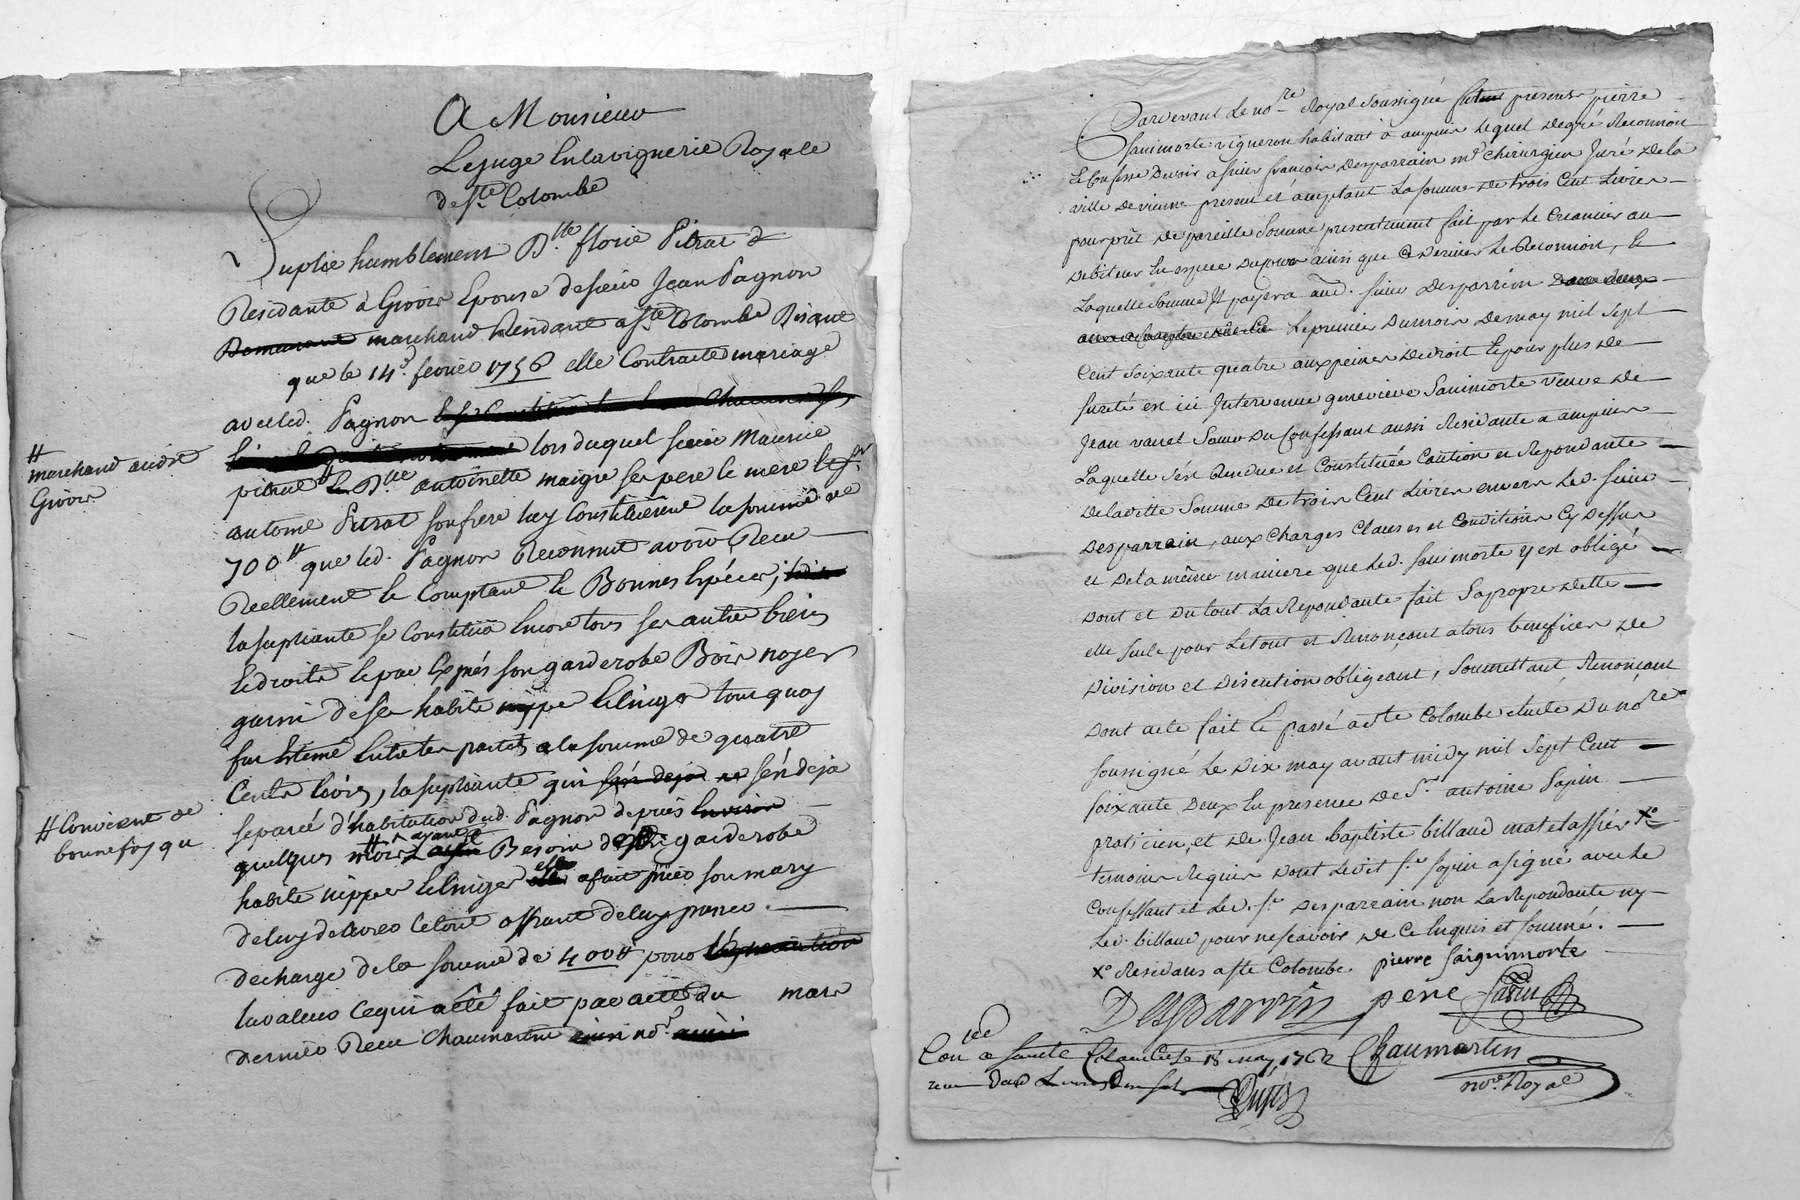 A Monsieur
Le juge En la viguerie Royale
de Ste. Colombe
Suplie humblement Dlle. florie Pitrat
Residante à Givors Epouse de sieur Jean Pagnon
marchand Residant a Ste Colombe Disant
que le 14e. fevrier 1756 elle Contracta mariage
avec led. Pagnon
lors duquel sieur Maurice
pitrat # & Dlle antoinette maigre ses pere & mere & sr.
antoine Pitrat son frere luy Constituerent la somme de
700# que led. Pagnon Reconnut avoir Receu
Reellement & Comptant & Bonnes Espéces,
la supliante se Constitua Encore tous ses autre biens
& droits & par Exprés son garderobe Bois noyer
garni de ses habits nippe & linges tout quoy
fut Estimé Entre les parties a la somme de quatre
Cents livres, la supliante qui s'en deja
separée d'habitation dud. Pagnon depuis
quelques mois # ayant Besoin de garderobe
habits nippes & linges elle a fait prier son mary
de luy delivrer le tout offrant de luy passer
decharge de la somme de 400# pour
la valeur ce qui a été fait par acte du mars
dernier Receu Chaumartin nore.
# marchand audit
Givors
# Convient de
bonne foy qu
Pardevant le nore Royal soussigné present pierre
Sanimorte vigneron habitant à ampuis lequel de gré Reconnoit
& Confesse devoir a sieur françois Desparrain me. chirurgien Juré de la
ville de vienne present et acceptant la somme de trois Cent Livres
pour prêt de pareille somme presentement fait par le Creancier au
debiteur En espece du cours ainsi que ce dernier Le Reconnoit, &
Laquelle somme Il payera aud. sieur Desparrein
Le premier du mois de may mil sept
Cent soixante quatre aux peines de droit & pour plus de
sureté est ici Intervenue genevieve Sanimorte veuve de
Jean varret soeur du Confessant aussi Residante a ampuis
Laquelle s'est Rendue et Constituée Caution et Repondante
de la ditte somme de trois Cent Livres envers led. sieur
Desparrain, aux Charges Clauses et Conditions Cy dessus
et de la même maniere que led. sanimorte y est obligé
dont et du tout La Repondante fait sa propre dette
elle seule pour Le tout et Renonçant a tous benefices de
division et discution obligeant, soumettant, Renonçant
dont acte fait & passé a ste Colombe etude du nore.
soussigné Le Dix may avant midy mil sept Cent
soixante deux En presence de Sr. antoine Sapin
praticien, et de Jean baptiste billaud matelassier x°
temoins Requis dont Ledit sr. sapin a signé avec le
Confessant et Led. sr. Desparrain non La Repondante ny
Led. billaud pour ne scavoir de ce Enquis et sommé.
x° Residans a ste Colombe. pierre saignimorte
Desparvin pere Sapin
Conlé a sainte Colombe le 18 may 1762 Chaumartin
nore. Royal